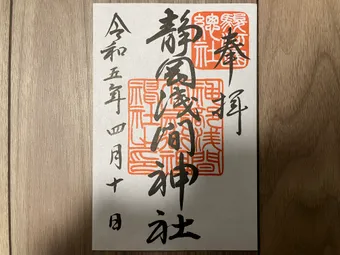 奉拝
静岡浅間神社
令和五年四月十日